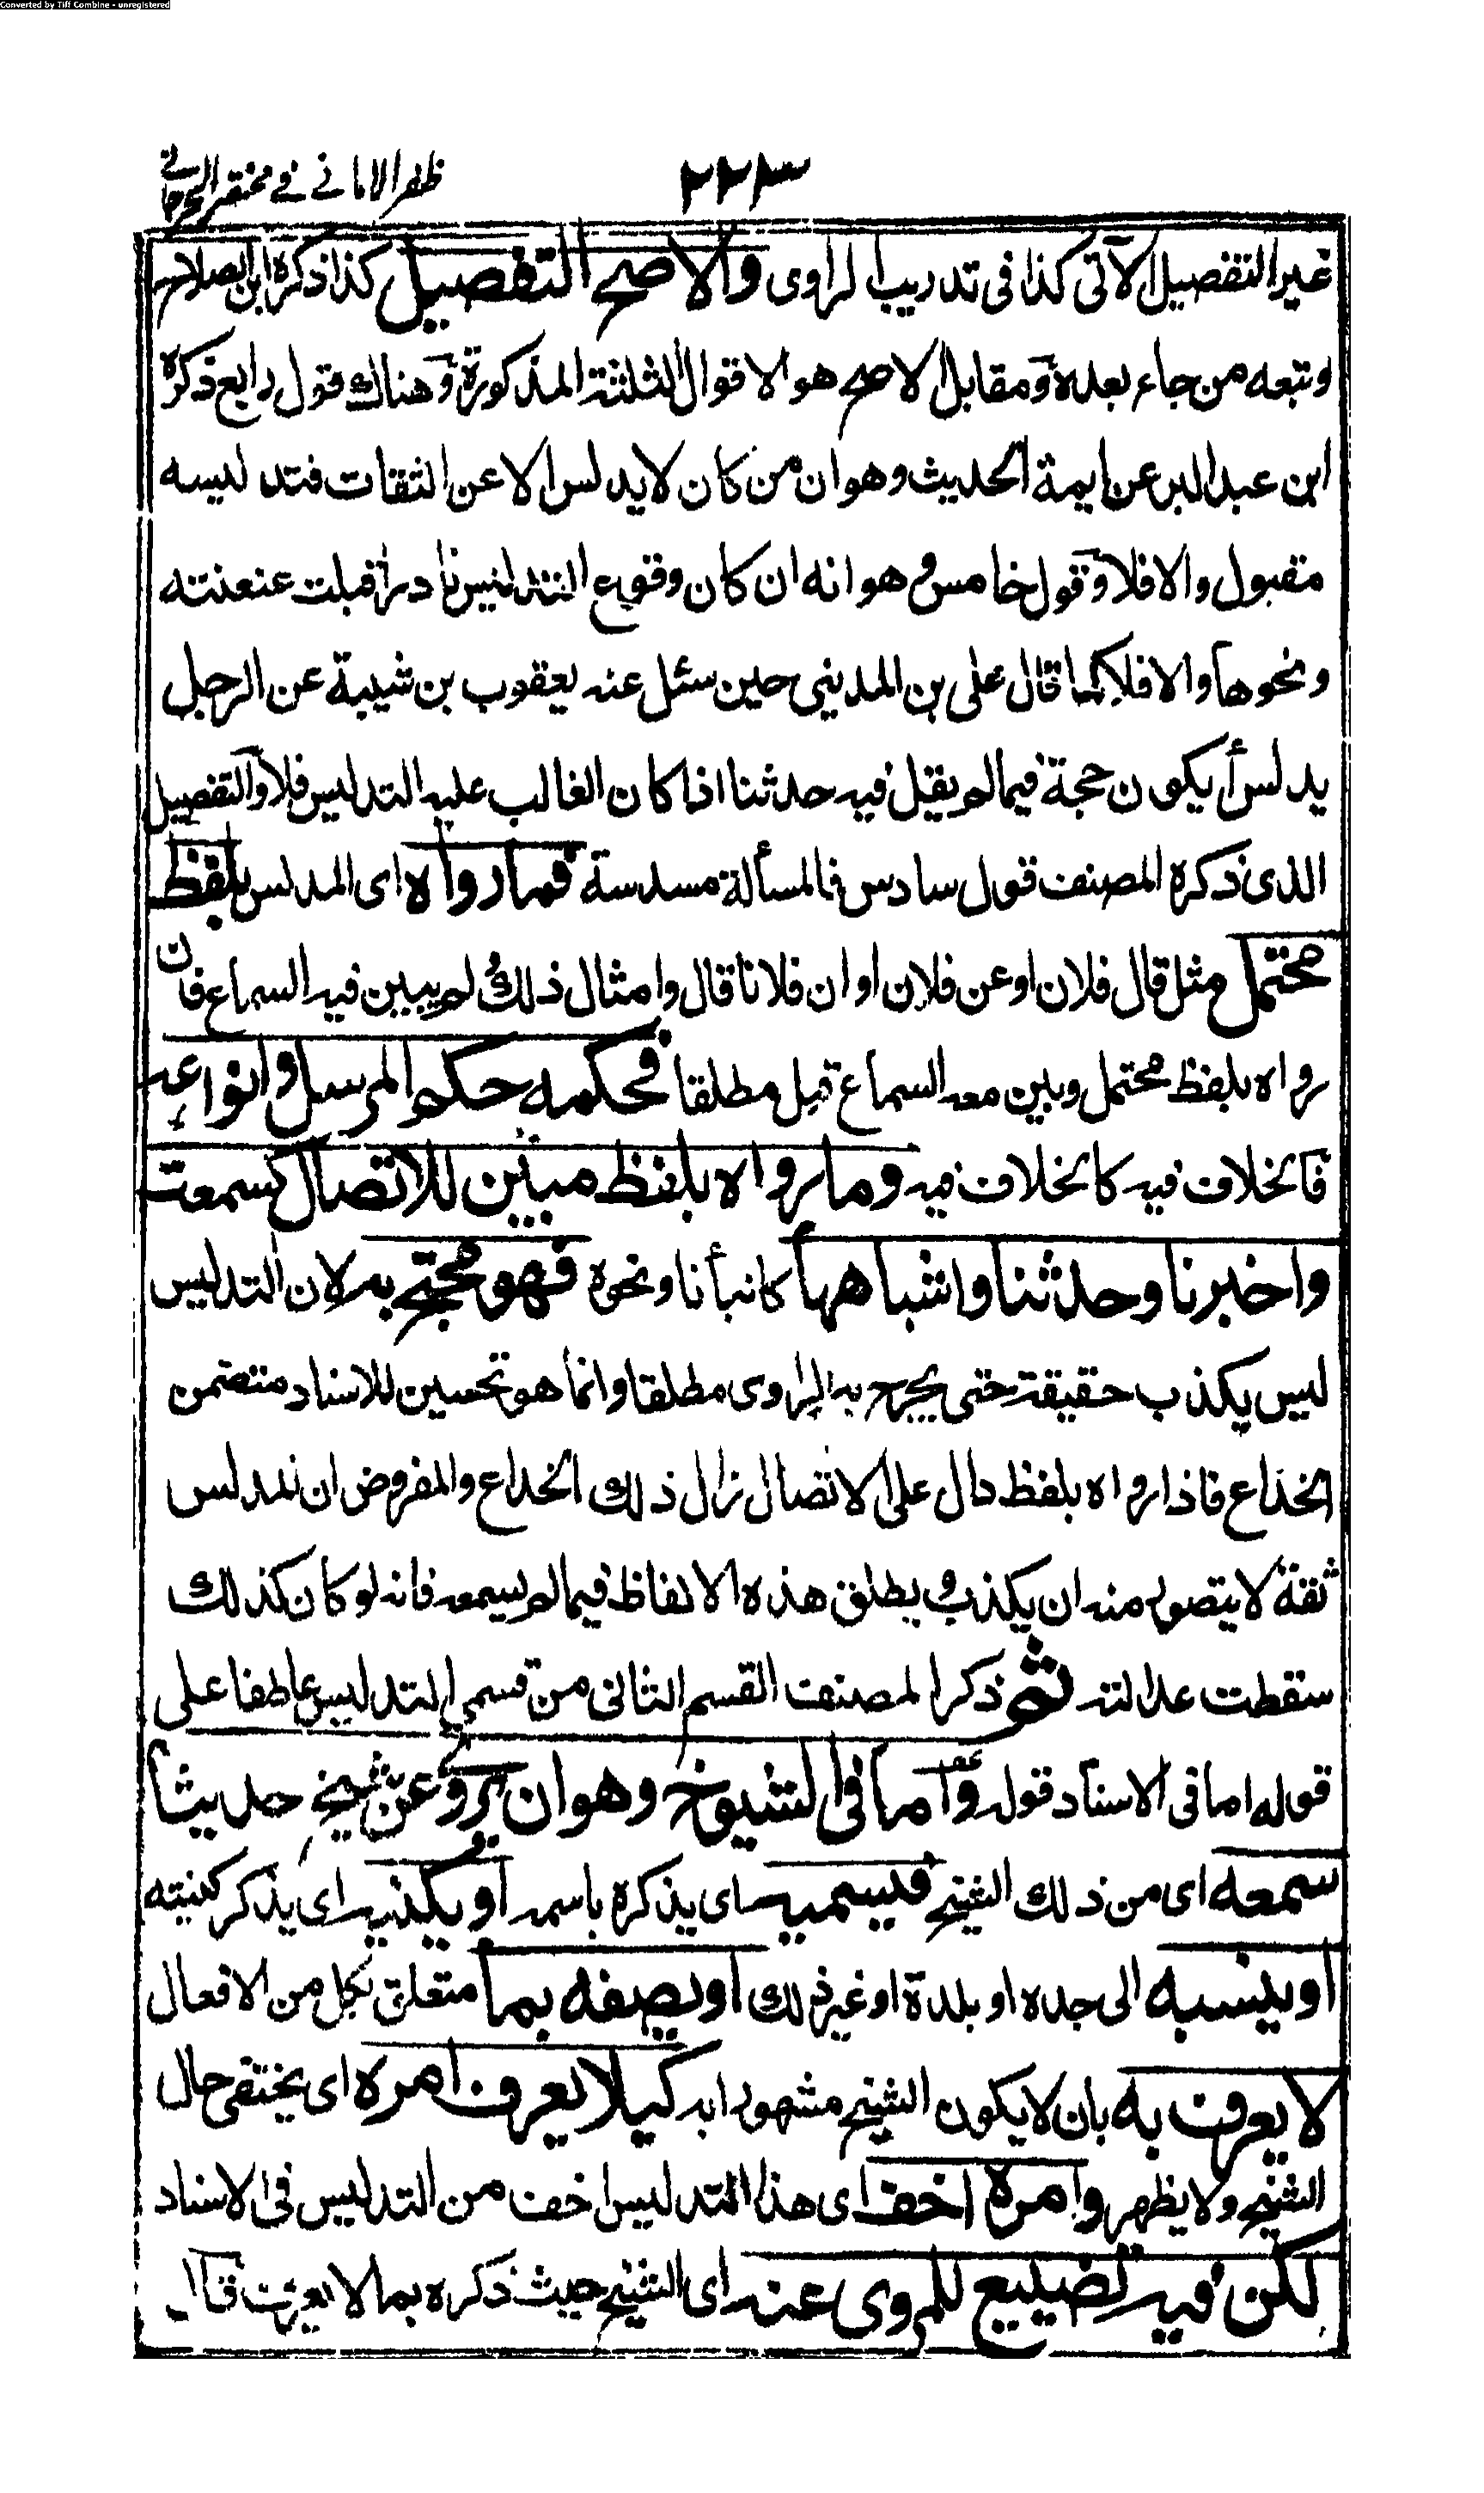 Converted by Tiff Combine - unregistered
٢٢٣
ظفر الامانے فے مختصر الجرجانے
غير التفصيل الآتى كذا فى تدريب الراوى والاصح التفصيل كذا ذكره ابن الصلاح
وتبعه من جاء بعده ومقابل الاصح هو الاقوال الثلثة المذكورة وهناك قول رابع ذكره
ابن عبد البر عن ايمة الحديث وهو ان من كان لا يدلس الا عن الثقات فتدليسه
مقبول والا فلا وقول خامس وهو انه ان كان وقوع التدليس نادرا قبلت عنعنته
ونحوها والا فلا كما قال على بن المدينى حين سئل عنه يعقوب بن شيبة عن الرجل
يدلس أيكون حجة فيما لم يقل فيه حدثنا اذا كان الغالب عليه التدليس فلا والتفصيل
الذى ذكره المصنف قول سادس فالمسألة مسدسة فما رواه اى المدلس بلفظ
محتمل مثل قال فلان او عن فلان او ان فلانا قال وامثال ذلك لم يبين فيه السماع فان
رواه بلفظ محتمل وبين معه السماع قبل مطلقا فحكمه حكم المرسل وانواعه
فالخلاف فيه كالخلاف فيه وما رواه بلفظ مبين للاتصال كسمعت
واخبرنا وحدثنا واشباهها كانبأنا ونحوه فهو محتج به لان التدليس
ليس بكذب حقيقة حتى يجرح به الراوى مطلقا وانما هو تحسين للاسناد متضمن
الخداع فاذا رواه بلفظ دال على الاتصال زال ذلك الخداع والمفروض ان المدلس
ثقة لا يتصور منه ان يكذب و يطلق هذه الالفاظ فيما لم يسمعه فانه لو كان كذلك
سقطت عدالته ثم ذكر المصنف القسم الثانى من قسمي التدليس عاطفا على
قوله اما فى الاسناد قوله واما فى الشيوخ وهو ان يروى عن شيخ حديثا
سمعه اى من ذلك الشيخ فيسميه اى يذكره باسمه او يكنيه اى يذكر كنيته
او ينسبه الى جده او بلدة او غير ذلك او يصفه بما متعلق بكل من الافعال
لا يعرف به بان لا يكون الشيخ مشهورا به كيلا يعرف امره اى يختفى حال
الشيخ ولا يظهر وامره اخف اى هذا التدليس اخف من التدليس فى الاسناد
لكن فيه تضييع للمروى عنه اى الشيخ حيث ذكره بما لا يعرف قال